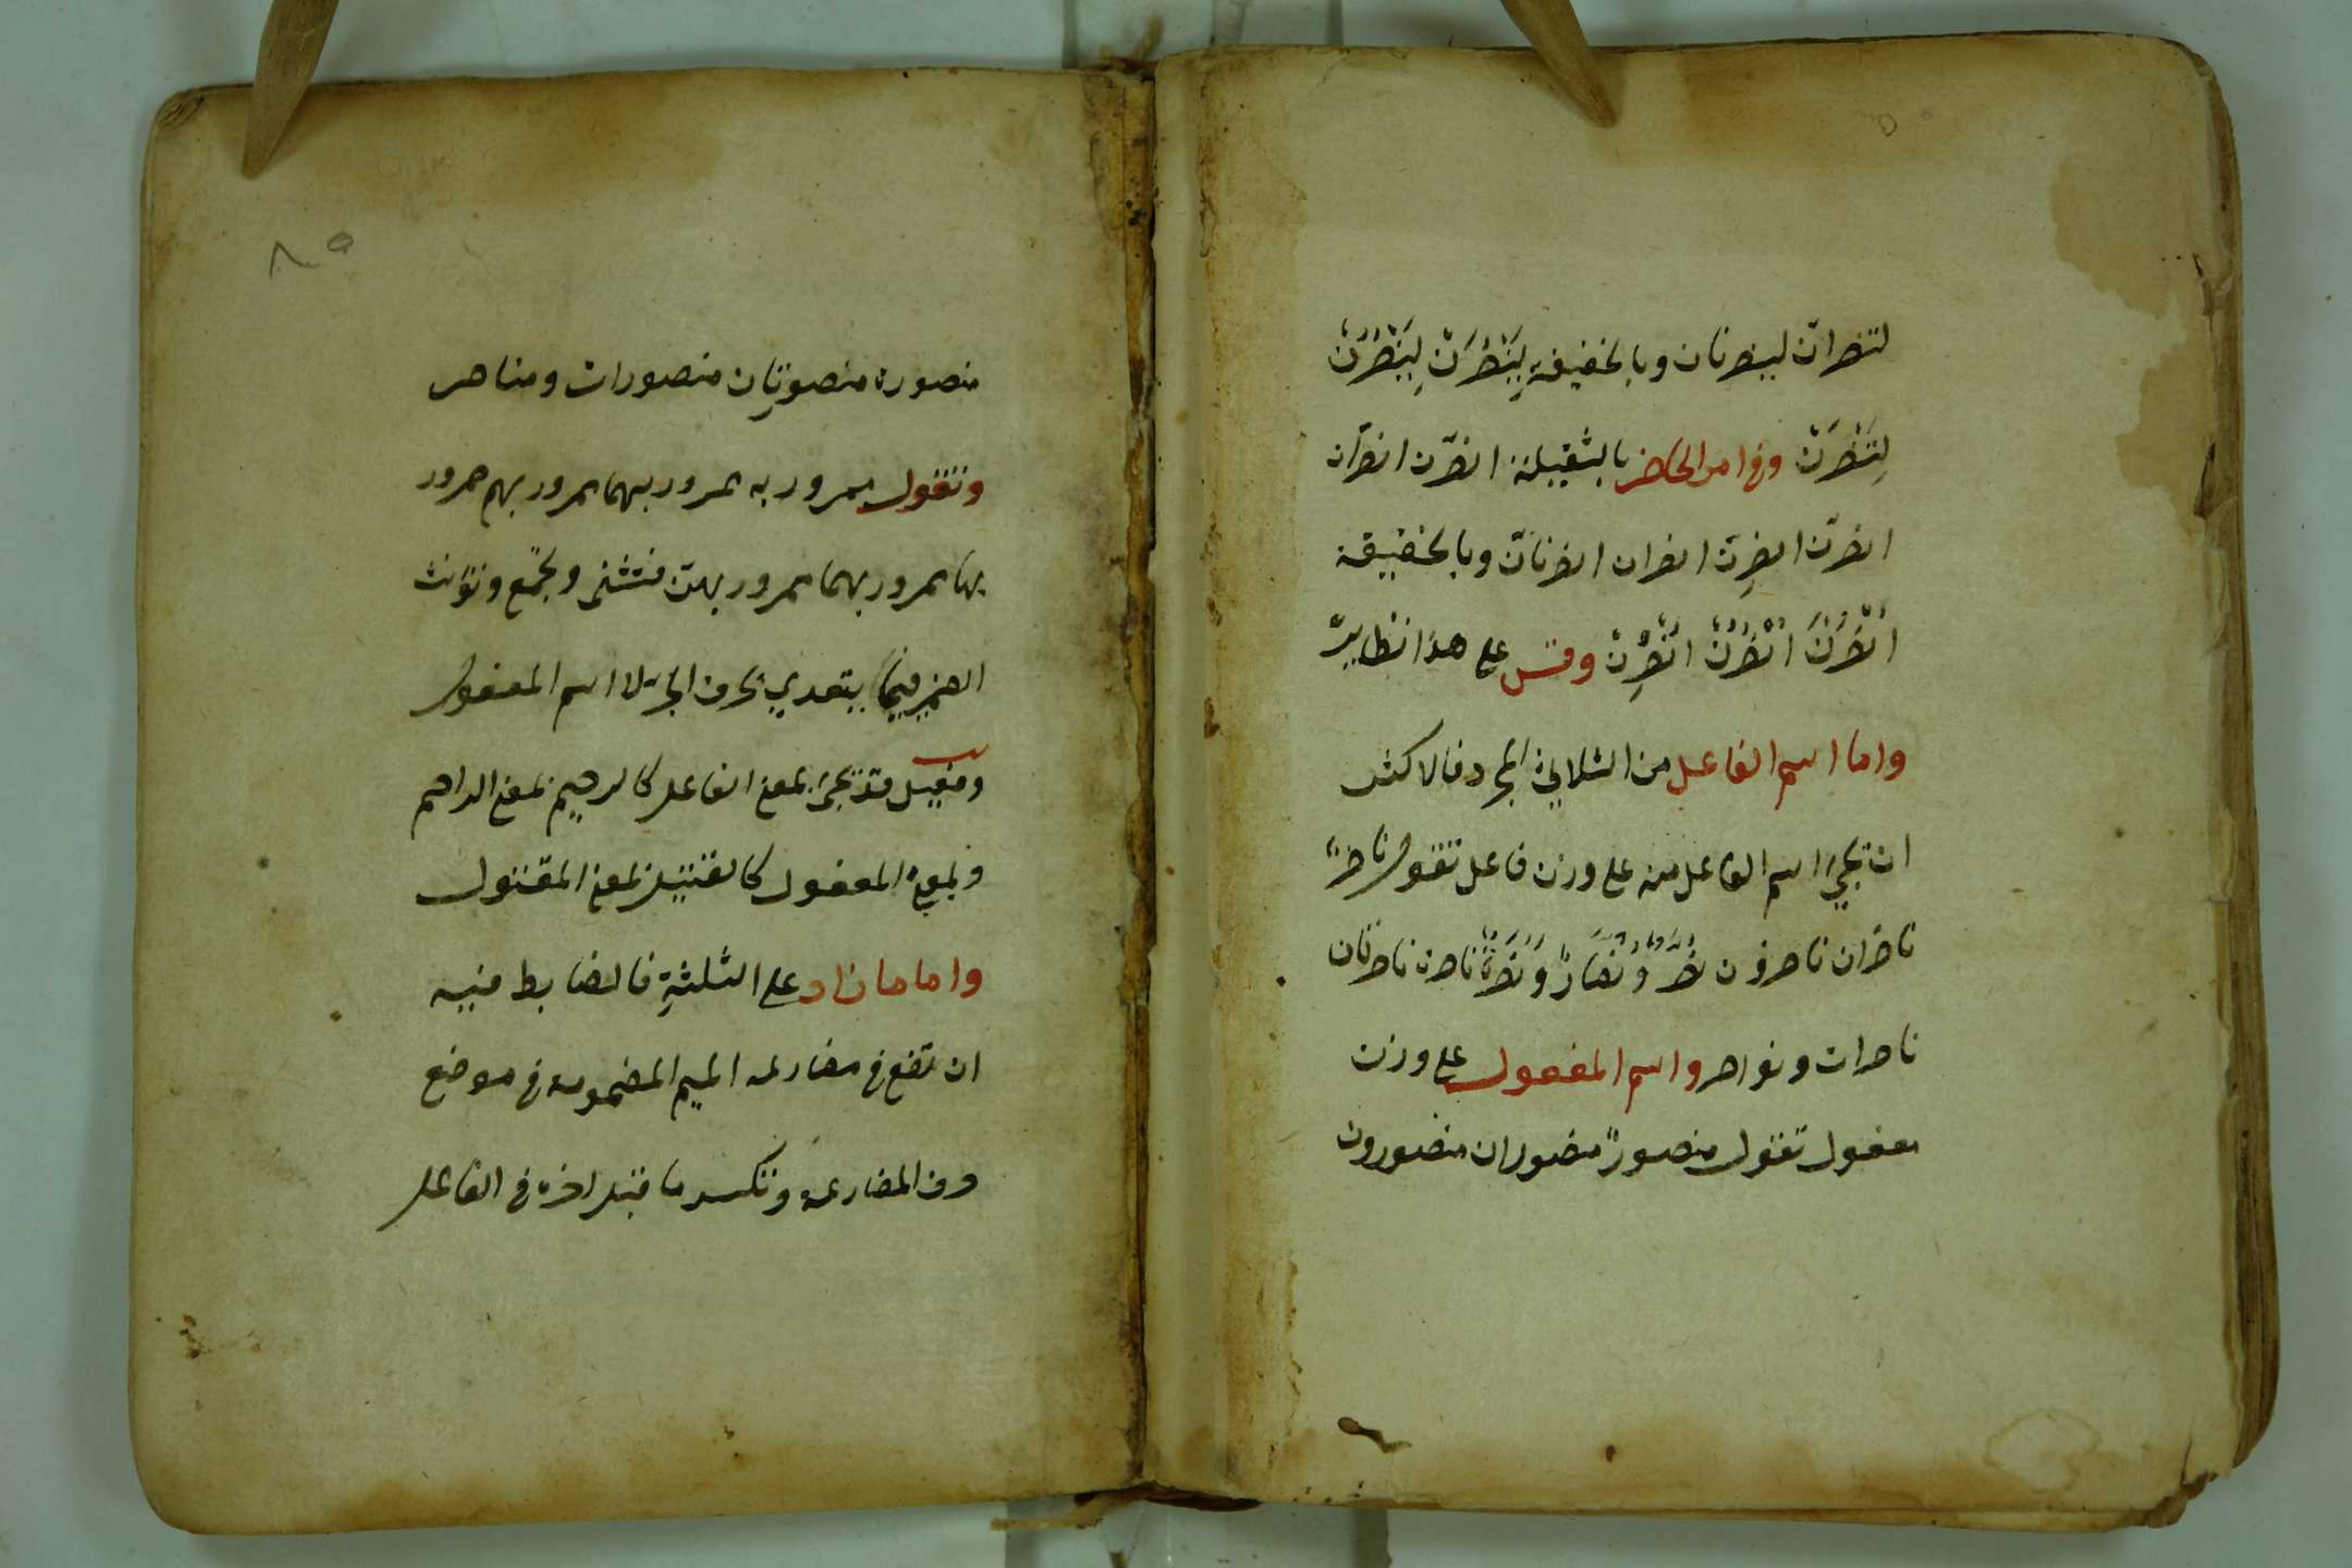 لتنصرانّ لينصرنان وبالخفيفة لِيَنْصُرَنْ لِيَنْصُرُنْ
لِتَنْصُرَنْ وفي امر الحاضر بالثقيلة انصرَنّ انصرانّ
انصرُنّ انصرِنّ انصران انصرنانّ وبالخفيفة
اُنْصُرَنْ اُنْصُرُنْ اُنْصُرِنْ وقس على هذا نظايره
واما اسم الفاعل من الثلاثي المجرد فالاكثر
ان يجئ اسم الفاعل منه على وزن فاعل تقول ناصرٌ
ناصران ناصرون نُصَّرٌ وَنُصَّارٌ وَنَصَرَةٌ ناصرة ناصرتان
ناصرات ونواصر واسم المفعول على وزن
مفعول تقول منصورٌ منصوران منصورون
٨٥
منصورة منصورتان منصورات ومناصر
وتقول ممرور به ممرور بهما ممرور بهم ممرور
بها ممرور بهما ممرور بهنّ فتثنى وتجمع وتؤنث
الضمير فيما يتعدي بحرف الجر لا اسم المفعول
وفعيل قد يجئ بمعنى الفاعل كالرحيم بمعنى الراحم
وبمعنى المفعول كالقتيل بمعنى المقتول
واما ما زاد على الثلثةِ فالضابط فيه
ان تضع في مضارعه الميم المضمومة في موضع
حرف المضارعة وتكسر ما قبل اخره في الفاعل